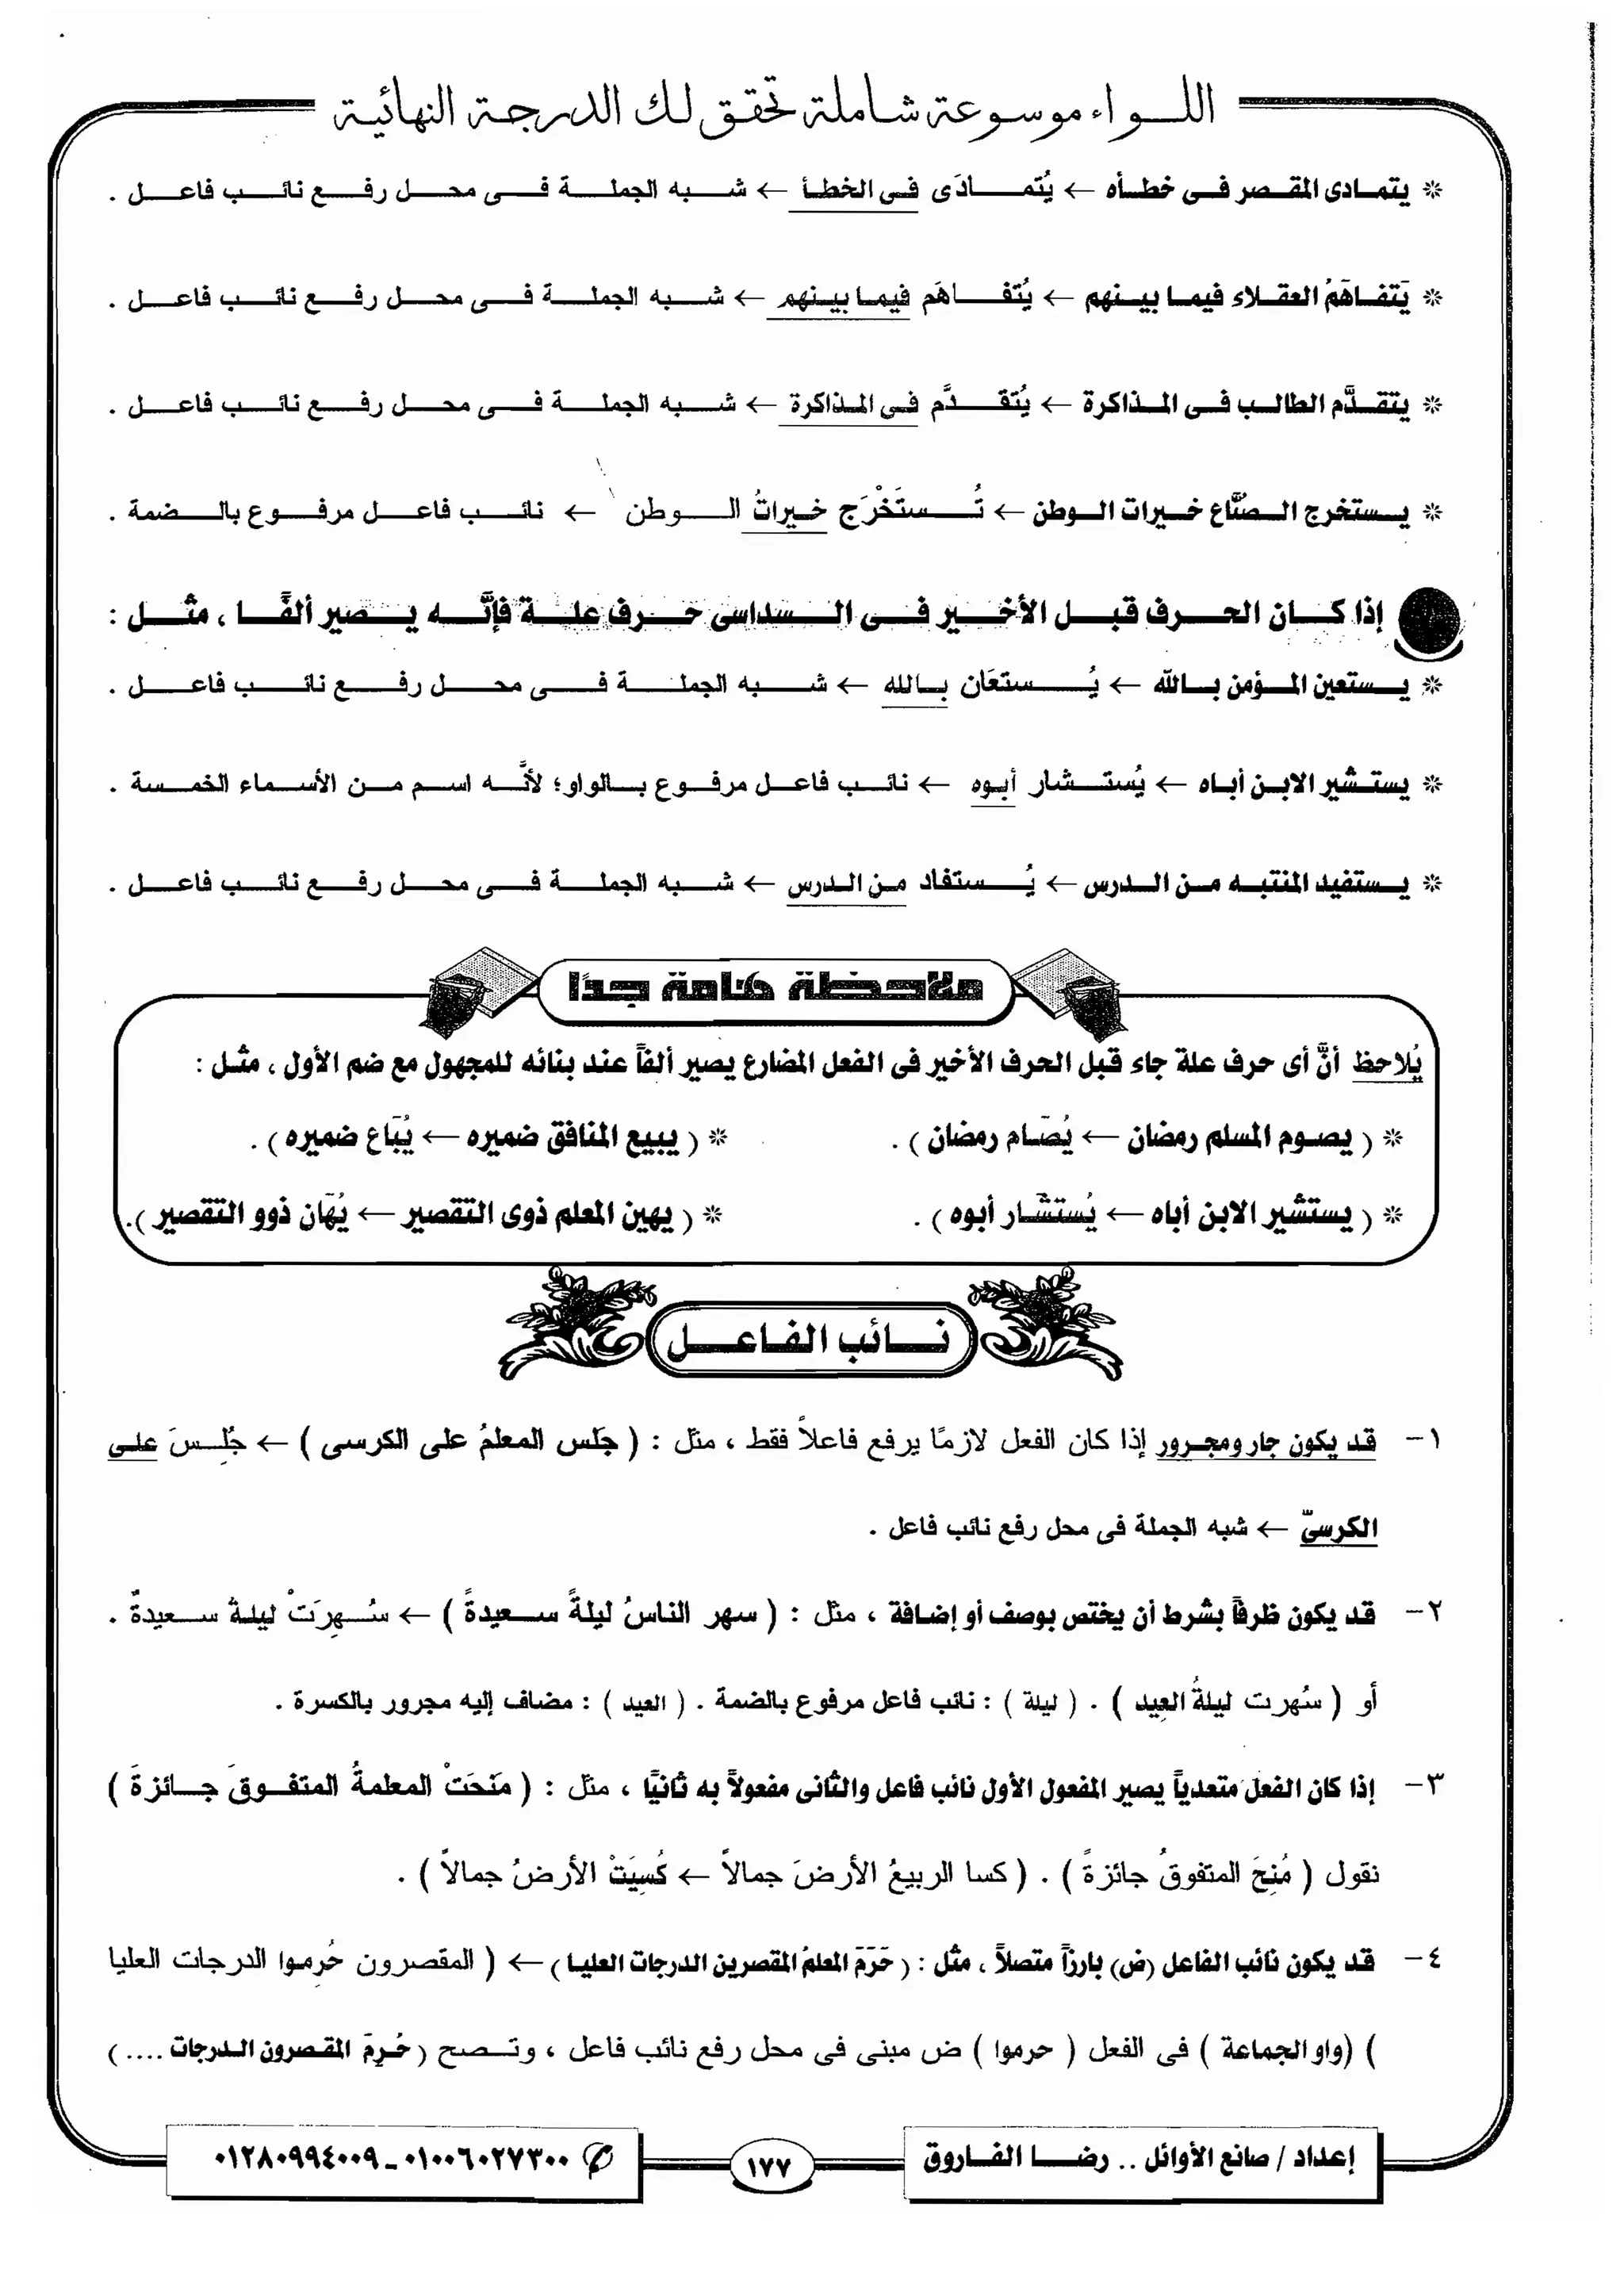 اللواء موسوعة شاملة تحقق لك الدرجة النهائية
* يتمادى المقصر فى خطأه ← يُتمادَى فى الخطأ ← شبه الجملة فى محل رفع نائب فاعل .
* يَتفاهَمُ العقلاء فيما بينهم ← يُتفاهَم فيما بينهم ← شبه الجملة فى محل رفع نائب فاعل .
* يتقدَّم الطالب فى المذاكرة ← يُتقدَّم فى المذاكرة ← شبه الجملة فى محل رفع نائب فاعل .
* يستخرج الصنَّاع خيرات الوطن ← تُستَخْرَج خيراتُ الوطن ← نائب فاعل مرفوع بالضمة .
إذا كان الحرف قبل الأخير فى السداسى حرف علة فإنَّه يصير ألفًا ، مثل :
* يستعين المؤمن بالله ← يُستعَان بالله ← شبه الجملة فى محل رفع نائب فاعل .
* يستشير الابن أباه ← يُستشار أبوه ← نائب فاعل مرفوع بالواو؛ لأنَّه اسم من الأسماء الخمسة .
* يستفيد المنتبه من الدرس ← يُستفاد من الدرس ← شبه الجملة فى محل رفع نائب فاعل .
ملاحظة هامة جدًا
يُلاحظ أنَّ أى حرف علة جاء قبل الحرف الأخير فى الفعل المضارع يصير ألفاً عند بنائه للمجهول مع ضم الأول ، مثل :
* ( يصوم المسلم رمضان ← يُصَام رمضان ) . * ( يبيع المنافق ضميره ← يُبَاع ضميره ) .
* ( يستشير الابن أباه ← يُستشَار أبوه ) . * ( يهين المعلم ذوى التقصير ← يُهَان ذوو التقصير ).
نائب الفاعل
١- قد يكون جار ومجرور إذا كان الفعل لازمًا يرفع فاعلاً فقط ، مثل : ( جَلَس المعلمُ على الكرسى ) ← جُلِسَ على
الكرسىّ ← شبه الجملة فى محل رفع نائب فاعل .
٢- قد يكون ظرفاً بشرط أن يختص بوصف أو إضافة ، مثل : ( سهر الناسُ ليلةً سعيدةً ) ← سُهِرَتْ ليلةٌ سعيدةٌ .
أو ( سُهرت ليلةُ العِيد ) . ( ليلة ) : نائب فاعل مرفوع بالضمة . ( العيد ) : مضاف إليه مجرور بالكسرة .
٣- إذا كان الفعل متعدياً يصير المفعول الأول نائب فاعل والثانى مفعولاً به ثانيًا ، مثل : ( مَنَحَتْ المعلمةُ المتفوقَ جائزةً )
نقول ( مُنِحَ المتفوقُ جائزةً ) . ( كسا الربيعُ الأرضَ جمالاً ← كُسِيَتْ الأرضُ جمالاً ) .
٤- قد يكون نائب الفاعل (ض) بارزاً متصلاً ، مثل : ( حَرَمَ المعلمُ المقصرين الدرجات العليا ) ← ( المقصرون حُرِموا الدرجات العليا
) (واو الجماعة ) فى الفعل ( حرموا ) ض مبنى فى محل رفع نائب فاعل ، وتصح ( حُرِمَ المقصرون الدرجات .... )
إعداد / صانع الأوائل .. رضا الفاروق
١٧٧
٠١٠٠٦٠٢٧٣٠٠ - ٠١٢٨٠٩٩٤٠٠٩